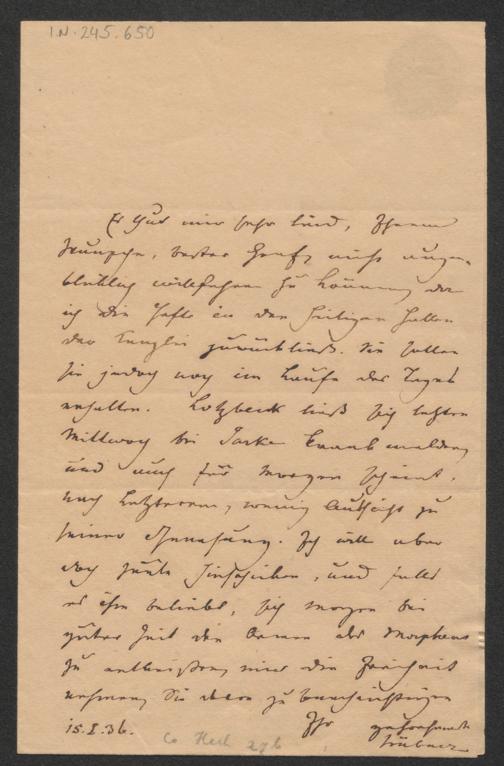 I.N. 245.650
Es thut mir sehr leid, Ihrem
Wunsche, bester Graf, nicht augen-
blicklich willfahren zu können, da
ich die Hefte in den heiligen Hallen
der Kanzlei zurückließ. Sie sollen
sie jedoch noch im Laufe des Tages
erhalten. Lotzbeck ließ sich letzten
Mittwoch bei Jarke krank melden,
und auch für morgen scheint,
nach Letzterem, wenig Aussicht zu
seiner Genesung. Ich will aber
doch heute hinschicken, und falls
es ihm beliebt, sich morgen bei
guter Zeit den Armen des Morpheus
zu entreißen, mir die Freiheit
nehmen, Sie davon zu benachrichtigen
Ihr gehorsamster
15.I.36. Hübner